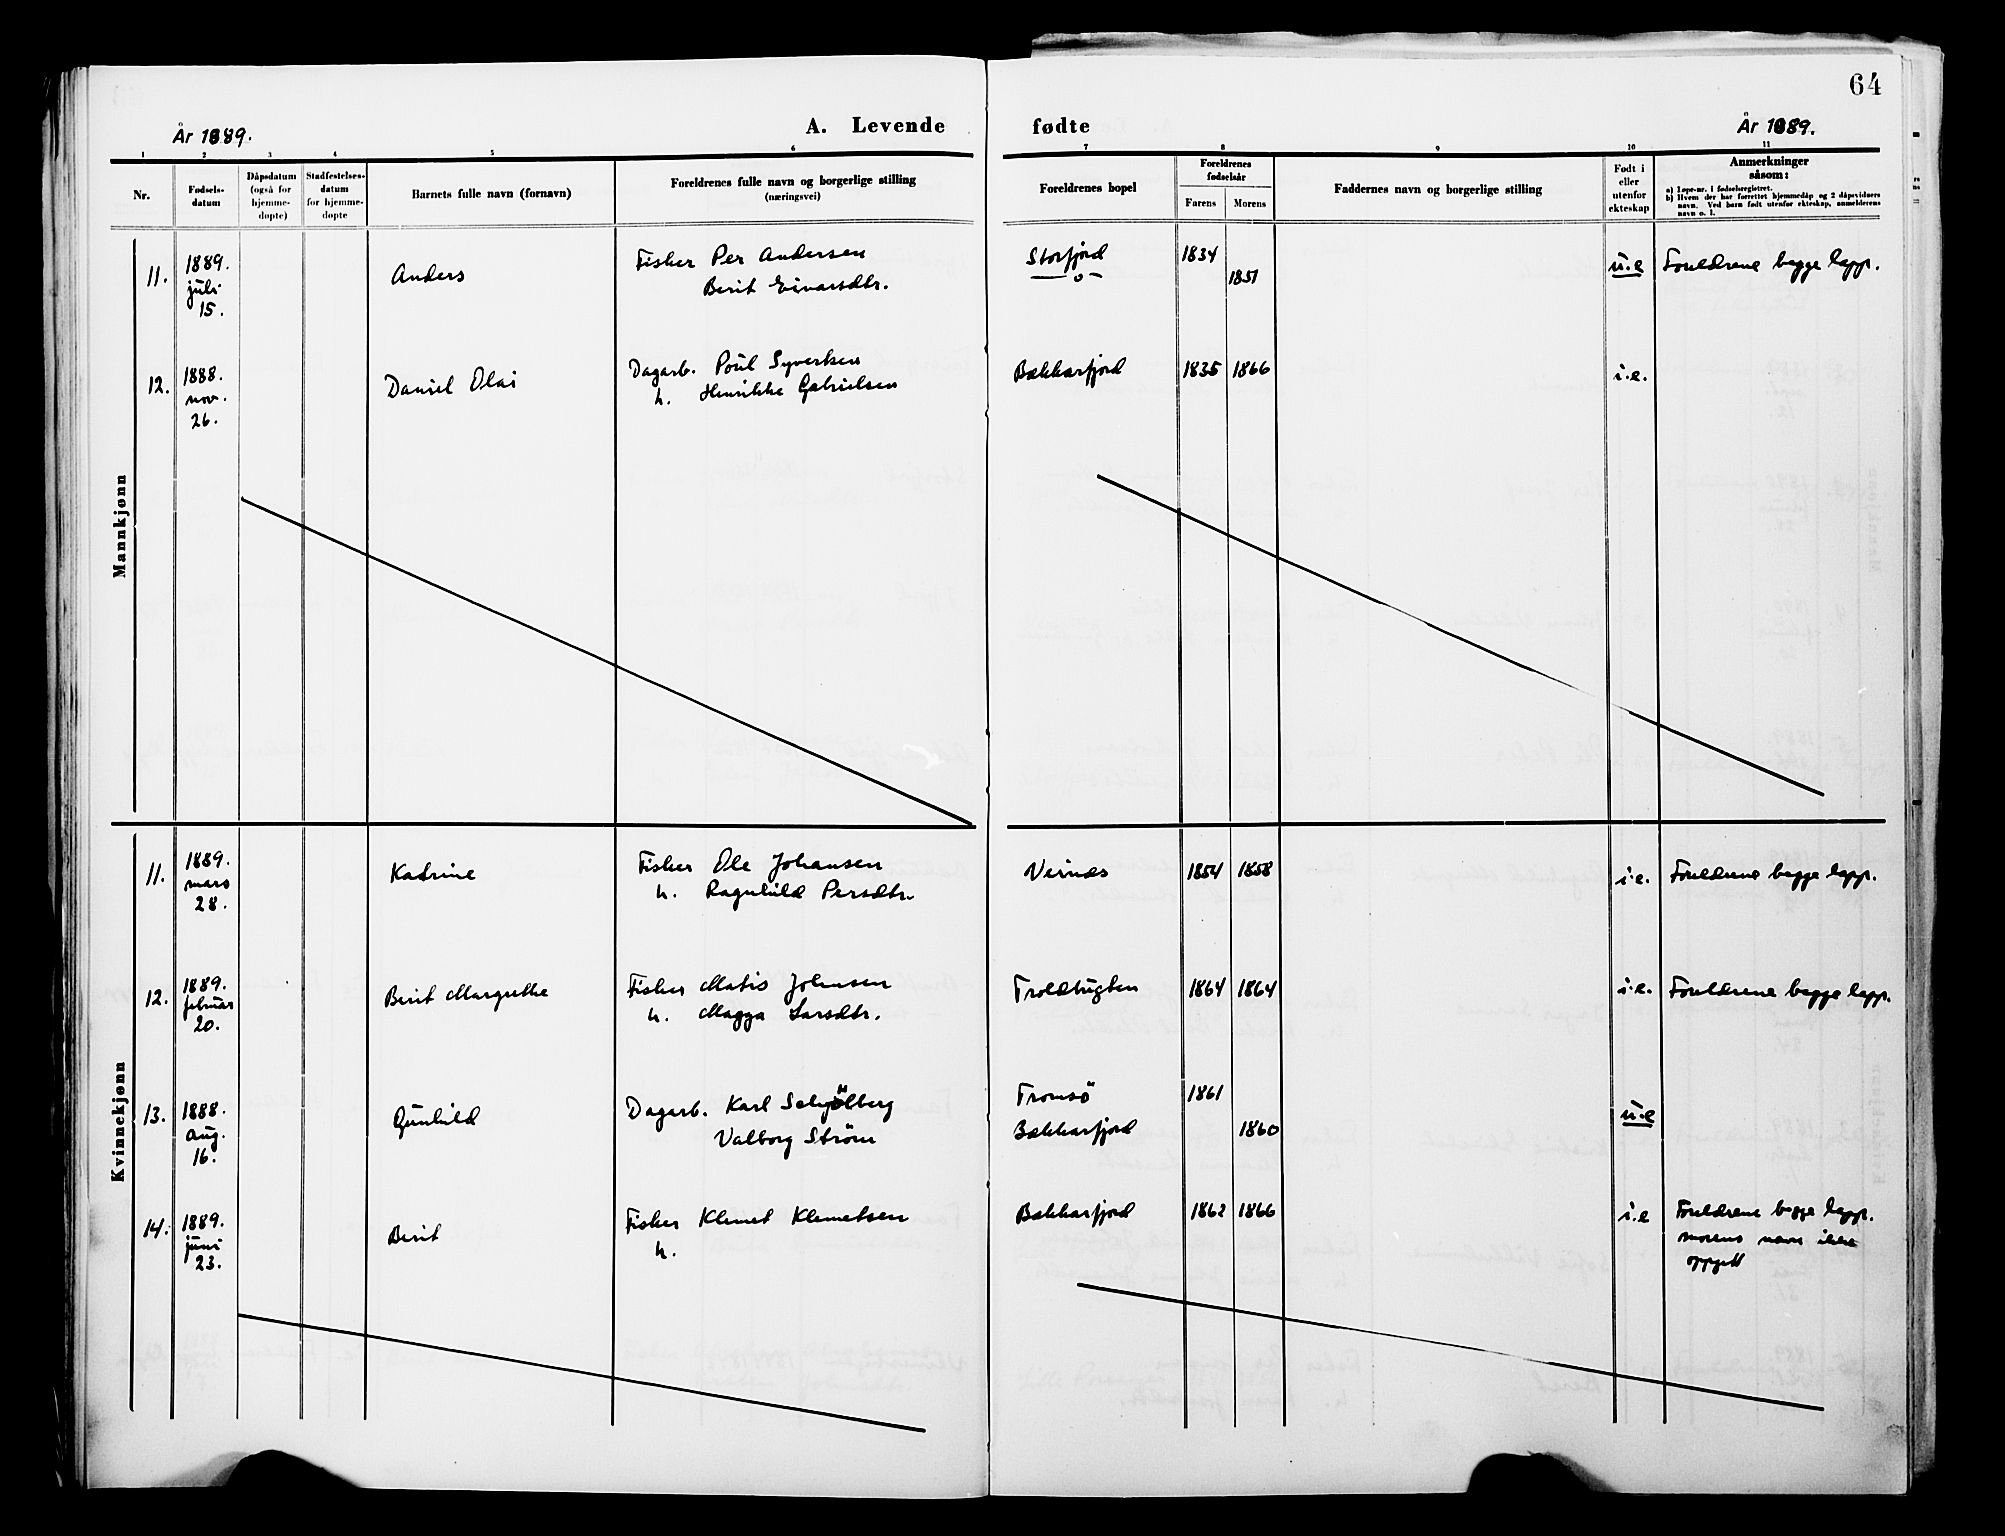 64
År 1889.
A. Levende
fødte
År 1889.
1 2 3 4 5 6 7 8 9 10 11
Nr.
Fødsels-
datum
Dåpsdatum
(også for
hjemme-
døpte)
Stadfestelses-
datum
for hjemme-
døpte
Barnets fulle navn (fornavn)
Foreldrenes fulle navn og borgerlige stilling
(næringsvei)
Foreldrenes bopel
Foreldrenes
fødselsår
Farens Morens
Faddernes navn og borgerlige stilling
Født i
eller
utenfor
ekteskap
Anmerkninger
såsom:
a) Løpe-nr. i fødselsregistret.
b) Hvem der har forrettet hjemmedåp og 2 dåpsvidners
navn. Ved barn født utenfor ekteskap, anmelderens
navn o. l.
Mannkjønn
11. 1889. juli 15. Anders Fisker Per Andersen Storfjord 1834 u.e Foreldrene begge lapp.
Berit Eivarsdtr. —o— 1851
12. 1888. nov. 26. Daniel Olai Dagarb. Poul Syvertsen Bækkarfjord 1835 1866 i.e.
h. Henrikke Gabrielsen
Kvinnekjønn
11. 1889. mars 28. Katrine Fisker Ole Johansen Veines 1854 1858 i.e. Foreldrene begge lapp.
h. Ragnhild Persdtr.
12. 1889. februar 20. Berit Margrethe Fisker Matis Johnsen Troldbugten 1864 1864 i.e. Foreldrene begge lapp.
h. Magga Larsdtr.
13. 1888. aug. 16. Gunhild Dagarb. Karl Schjölberg Tromsö 1861 u.e
Valborg Ström Bækkarfjord 1860
14. 1889. juni 23. Berit Fisker Klemet Klemetsen Bækkarfjord 1862 1866 i.e Foreldrene begge lapp.
h. morens navn ikke
oppgitt